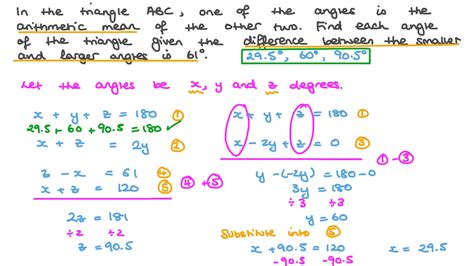 In the triangle ABC, one of the angles is the
arithmetic mean of the other two. Find each angle
of the triangle given the difference between the smaller
and larger angles is 61°. 29.5°, 60°, 90.5°
Let the angles be x, y and z degrees.
x + y + z = 180 ①
29.5 + 60 + 90.5 = 180 ✓
x + z = 2y ②
z - x = 61 ④
x + z = 120 ⑤ ④ + ⑤
2z = 181
÷2 ÷2
z = 90.5
x + y + z = 180 ①
x - 2y + z = 0 ③
① - ③
y - (-2y) = 180 - 0
3y = 180
÷3 ÷3
y = 60
Substitute into ⑤
x + 90.5 = 120 x = 29.5
-90.5 -90.5